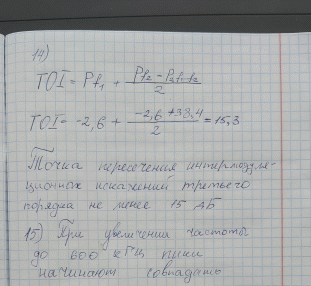 14)
TOI = Pf₁ + (Pf₂ - P₂f₁-f₂)/2
TOI = -2,6 + (-2,6 + 38,4)/2 = 15,3
Точка пересечения интермодуля-
ционных искажений третьего
порядка не менее 15 дБ
15) При увеличении частоты
до 600 кГц пики
начинают совпадать